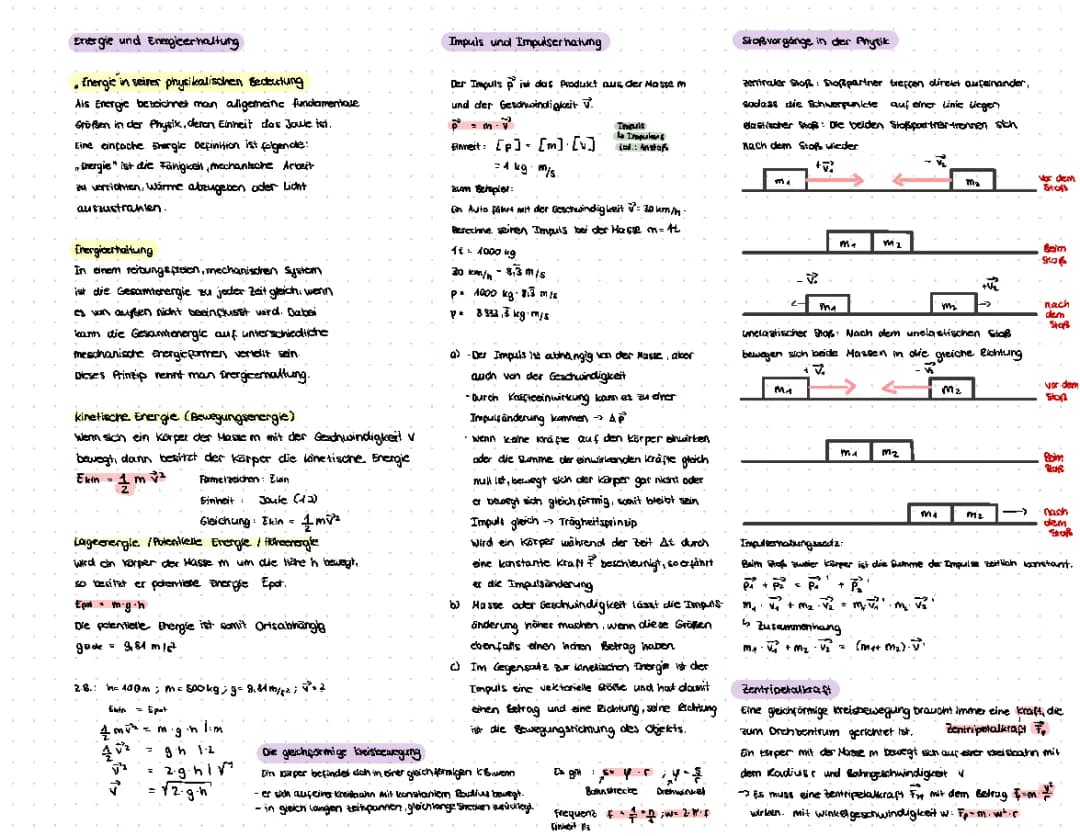 Energie und Energieerhaltung
„Energie" in seiner physikalischen Bedeutung
Als Energie bezeichnet man allgemeine fundamentale
Größen in der Physik, deren Einheit das Joule ist.
Eine einfache Energie Definition ist folgende:
„Energie" ist die Fähigkeit, mechanische Arbeit
zu verrichten, Wärme abzugeben oder Licht
auszustrahlen.
Energieerhaltung
In einem reibungsfreien, mechanischen System
ist die Gesamtenergie zu jeder Zeit gleich, wenn
es von außen nicht beeinflusst wird. Dabei
kann die Gesamtenergie auf unterschiedliche
meschanische Energieformen verteilt sein.
Dieses Prinzip nennt man Energieerhaltung.
kinetische Energie (Bewegungsenergie)
Wenn sich ein Körper der Masse m mit der Geschwindigkeit v
bewegt, dann besitzt der Körper die kinetische Energie
Ekin = 1/2 m v⃗²
Formelzeichen: Ekin
Einheit: Joule (1J)
Gleichung: Ekin = 1/2 mv⃗²
Lageenergie / Potentielle Energie / Höhenergie
wird ein Körper der Masse m um die Höhe h bewegt,
so besitzt er potentielle Energie Epot.
Epot = m·g·h
Die potentielle Energie ist somit Ortsabhängig
g = 9,81 m/s²
z.B.: h= 100m ; m= 500kg ; g= 9,81m/s² ; v⃗=?
Ekin = Epot
1/2 mv⃗² = m·g·h |:m
1/2 v⃗² = g·h |·2
v⃗² = 2·g·h |√
v⃗ = √2·g·h
Impuls und Impulserhaltung
Der Impuls p⃗ ist das Produkt aus der Masse m
und der Geschwindigkeit v⃗.
p⃗ = m·v⃗
Einheit: [p] = [m]·[v]
= 1 kg · m/s
Impuls
↳ Impulsus
(lat.: Anstoß)
zum Beispiel:
Ein Auto fährt mit der Geschwindigkeit v⃗= 30 km/h.
Berechne seinen Impuls bei der Masse m= 1t
1t = 1000 kg
30 km/h = 8,3̅ m/s
p = 1000 kg · 8,3̅ m/s
p = 8333,3̅ kg·m/s
a) - Der Impuls ist abhängig von der Masse, aber
auch von der Geschwindigkeit
- Durch Krafteinwirkung kann es zu einer
Impulsänderung kommen → Δp⃗
· wenn keine Kräfte auf den Körper einwirken
oder die Summe der einwirkenden Kräfte gleich
null ist, bewegt sich der Körper gar nicht oder
er bewegt sich gleichförmig, somit bleibt sein
Impuls gleich → Trägheitsprinzip
Wird ein Körper während der Zeit Δt durch
eine konstante Kraft F⃗ beschleunigt, so erfährt
er die Impulsänderung
b) Masse oder Geschwindigkeit lässt die Impuls-
änderung höher machen, wenn diese Größen
ebenfalls einen hohen Betrag haben
c) Im Gegensatz zur kinetischen Energie ist der
Impuls eine vektorielle Größe und hat damit
einen Betrag und eine Richtung, seine Richtung
ist die Bewegungsrichtung des Objekts.
Die gleichförmige Kreisbewegung
Ein Körper befindet sich in einer gleichförmigen KB wenn
- er sich auf einer Kreisbahn mit konstantem Radius bewegt.
- in gleich langen Zeitspannen, gleichlange Strecken zurücklegt.
Es gilt : s= φ·r ; φ= s/r
Bahnstrecke Drehwinkel
Frequenz f = 1/T = n/t ; w= 2·π·f
Einheit Hz
Stoßvorgänge in der Physik
zentraler Stoß: Stoßpartner treffen direkt aufeinander,
sodass die Schwerpunkte auf einer Linie liegen
elastischer Stoß: Die beiden Stoßpartner trennen sich
nach dem Stoß wieder
+v⃗₁ - v⃗₂
m₁ m₂
vor dem
Stoß
m₁ m₂
Beim
Stoß
- v⃗₁ +v⃗₂
m₁ m₂
nach
dem
Stoß
unelastischer Stoß: Nach dem unelastischen Stoß
bewegen sich beide Massen in die gleiche Richtung
+ v⃗₁ - v⃗₂
m₁ m₂
vor dem
Stoß
m₁ m₂
Beim
Stoß
m₁ m₂
nach
dem
Stoß
Impulserhaltungssatz:
Beim Stoß zweier Körper ist die Summe der Impulse zeitlich konstant.
p⃗₁ + p⃗₂ = p⃗₁' + p⃗₂'
m₁ · v⃗₁ + m₂ · v⃗₂ = m₁·v⃗₁' · m₂ · v⃗₂'
↳ Zusammenhang
m₁ · v⃗₁ + m₂ · v⃗₂ = (m₁+ m₂)·v⃗'
Zentripetalkraft
Eine gleichförmige Kreisbewegung braucht immer eine Kraft, die
zum Drehzentrum gerichtet ist. Zentripetalkraft F⃗p
Ein Körper mit der Masse m bewegt sich auf einer Kreisbahn mit
dem Radius r und Bahngeschwindigkeit v
→ Es muss eine Zentripetalkraft mit dem Betrag F=m·v²/r
wirken. mit winkelgeschwindigkeit w: Fp=m·w²·r